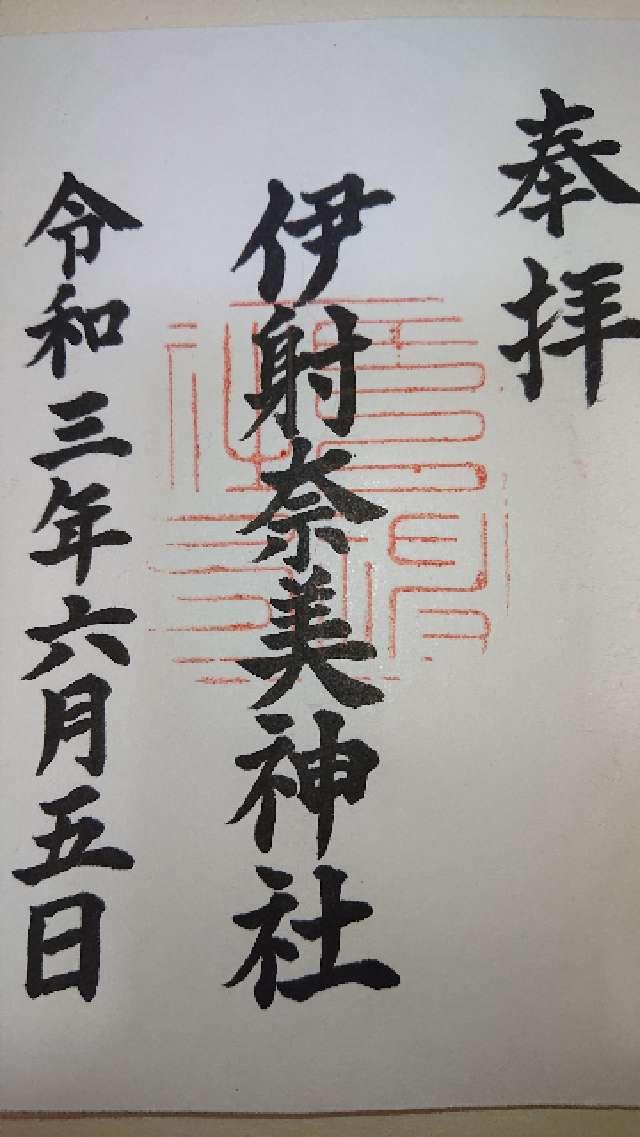 奉拝
伊射奈美神社
令和三年六月五日